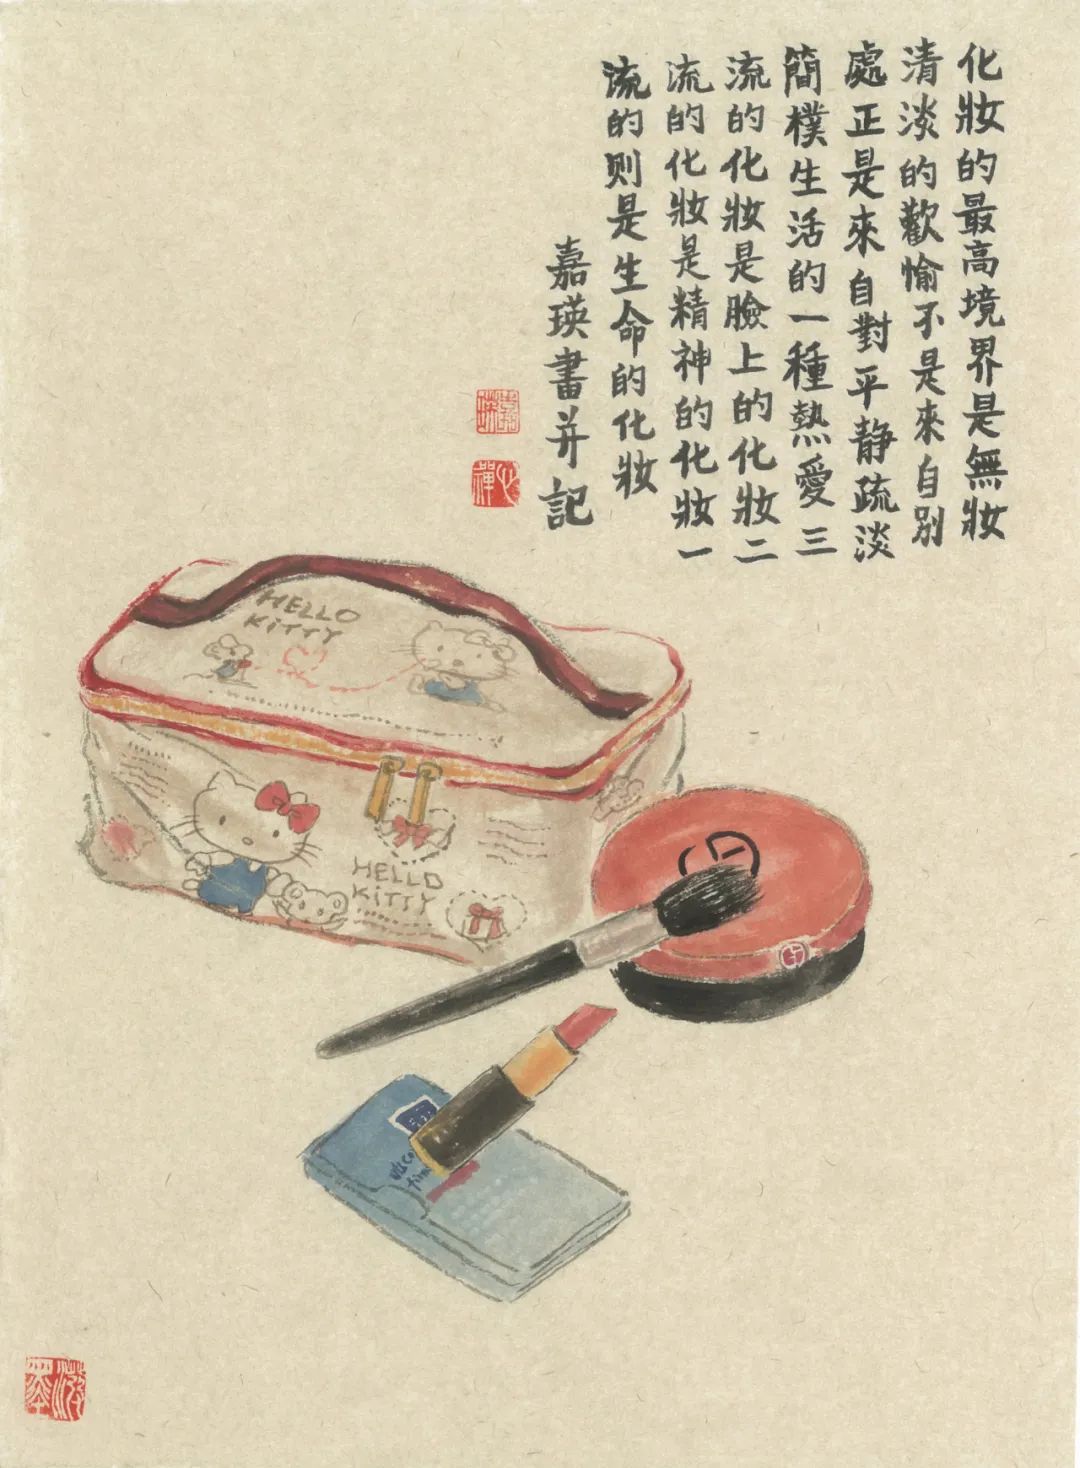 化妝的最高境界是無妝
清淡的歡愉不是來自别
處正是來自對平静疏淡
簡樸生活的一種熱愛三
流的化妝是臉上的化妝二
流的化妝是精神的化妝一
流的则是生命的化妝
嘉瑛畫并記
嘉瑛
心禪
HELLO
KITTY
HELLO
KITTY
游墨